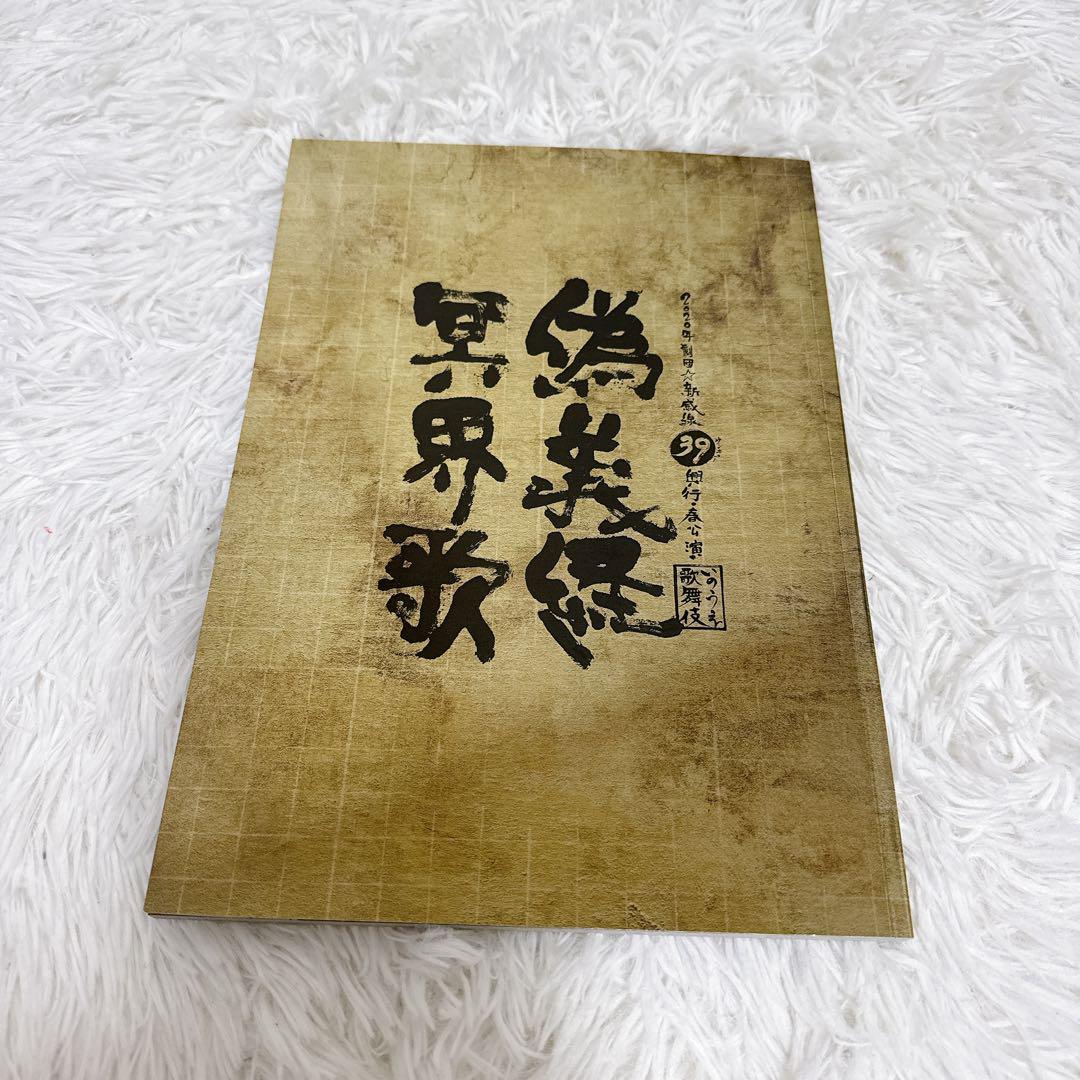 2020年劇団☆新感線
39興行・春公演
サンキュー
いのうえ
歌舞伎
偽義経
冥界歌